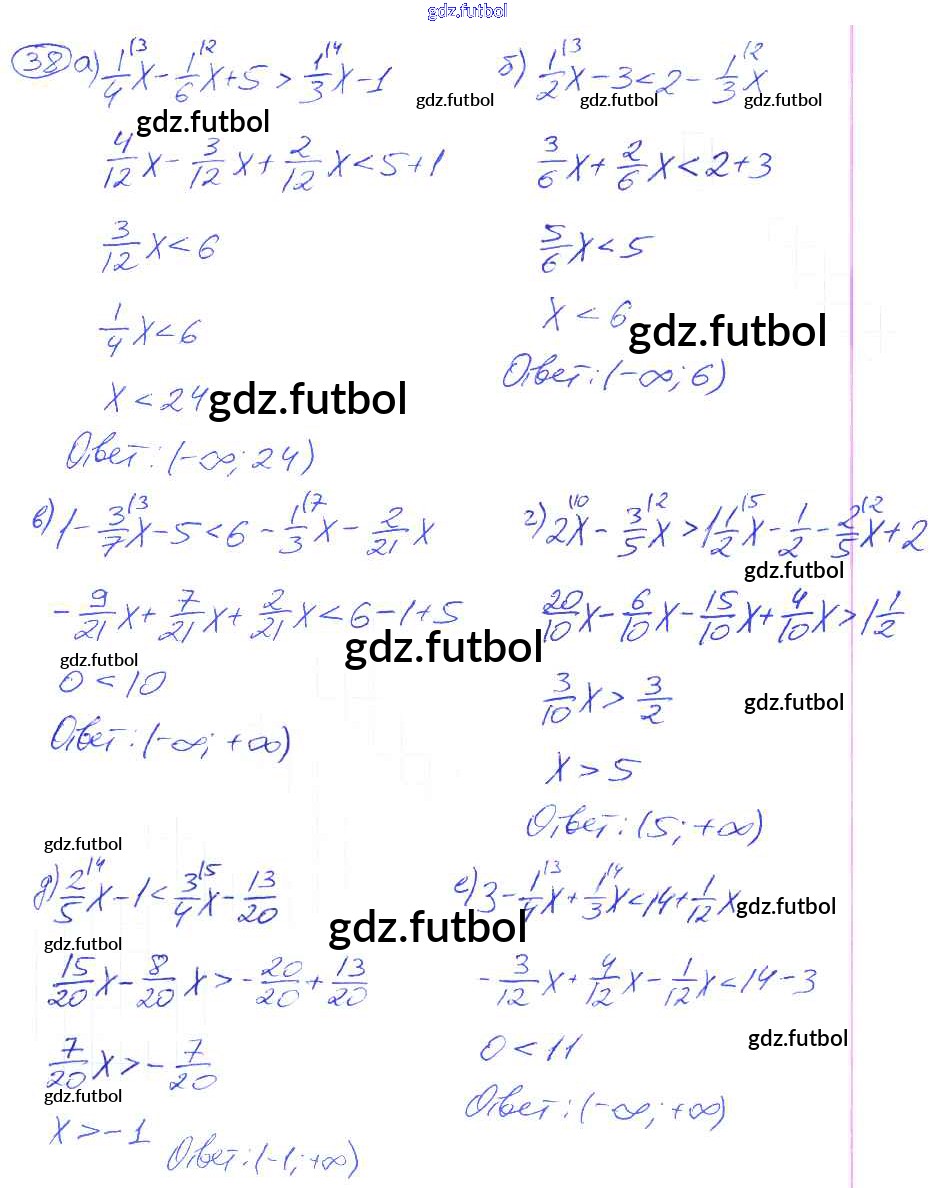 gdz.futbol
38 а) 1/4 |3 x - 1/6 |2 x + 5 > 1/3 |4 x - 1
gdz.futbol
4/12 x - 3/12 x + 2/12 x < 5 + 1
3/12 x < 6
1/4 x < 6
x < 24
gdz.futbol
Ответ: (-∞; 24)
б) 1/2 |3 x - 3 < 2 - 1/3 |2 x
gdz.futbol gdz.futbol gdz.futbol
3/6 x + 2/6 x < 2 + 3
5/6 x < 5
x < 6
gdz.futbol
Ответ: (-∞; 6)
в) 1 - 3/7 |3 x - 5 < 6 - 1/3 |7 x - 2/21 x
- 9/21 x + 7/21 x + 2/21 x < 6 - 1 + 5
gdz.futbol gdz.futbol
0 < 10
Ответ: (-∞; +∞)
г) 2 |10 x - 3/5 |2 x > 1 1/2 |5 x - 1/2 - 2/5 |2 x + 2
gdz.futbol
20/10 x - 6/10 x - 15/10 x + 4/10 x > 1 1/2
3/10 x > 3/2
gdz.futbol
x > 5
Ответ: (5; +∞)
gdz.futbol
д) 2/5 |4 x - 1 < 3/4 |5 x - 13/20
gdz.futbol gdz.futbol
15/20 x - 8/20 x > - 20/20 + 13/20
7/20 x > - 7/20
gdz.futbol
x > -1
Ответ: (-1; +∞)
е) 3 - 1/4 |3 x + 1/3 |4 x < 14 + 1/12 x
gdz.futbol
- 3/12 x + 4/12 x - 1/12 x < 14 - 3
gdz.futbol
0 < 11
Ответ: (-∞; +∞)